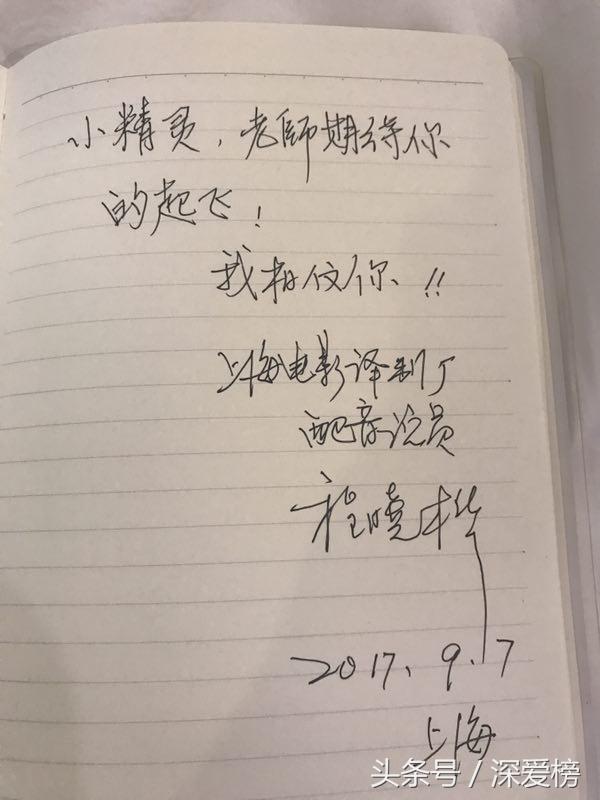 小精灵，老师期待你
的起飞！
我相信你！！
上海电影译制厂
配音演员
程晓桦
2017、9、7
上海
头条号／深爱榜